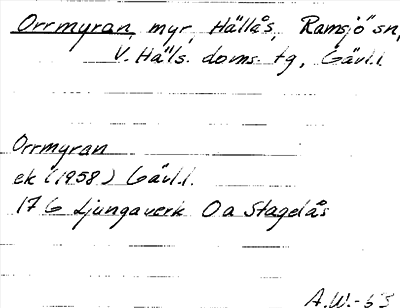 Orrmyran, myr, Hällås, Ramsjö sn,
V. Häls. doms. tg, Gävl.l
Orrmyran
ek (1958) Gävl.l.
17 G Ljungaverk O a Stagelås
A.W.-63